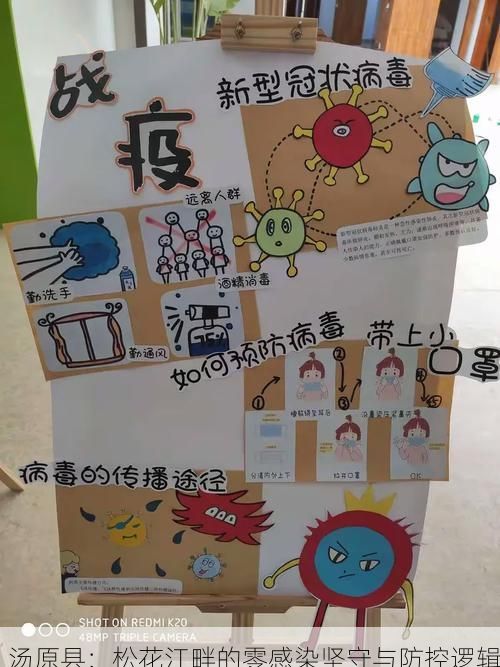 战
疫
新型冠状病毒
远离人群
酒精消毒
勤洗手
勤通风
如何预防病毒
带上小
口罩
1
2
3
4
5
分清内外上下
拉开口罩
OK
病毒的传播途径
SHOT ON REDMI K20
48MP TRIPLE CAMERA
汤原县：松花江畔的零感染坚守与防控逻辑